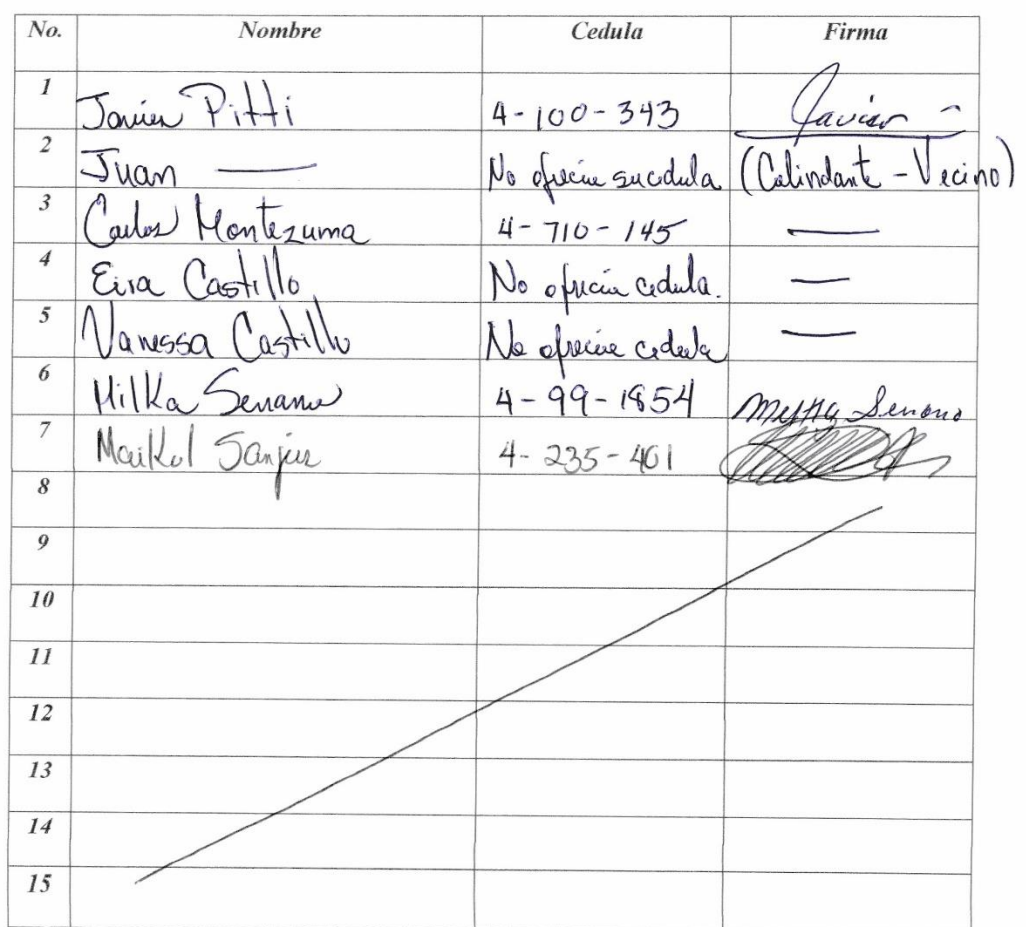 No. Nombre Cedula Firma
1 Javier Pitti 4-100-343 Javier
2 Juan — No ofrecio su cedula (Colindante - Vecino)
3 Carlos Montezuma 4-710-145 —
4 Eira Castillo No ofrecio cedula. —
5 Vanessa Castillo No ofrecio cedula —
6 Milka Serrano 4-99-1854 Serrano
7 Maikol Sanjur 4-235-401
8
9
10
11
12
13
14
15